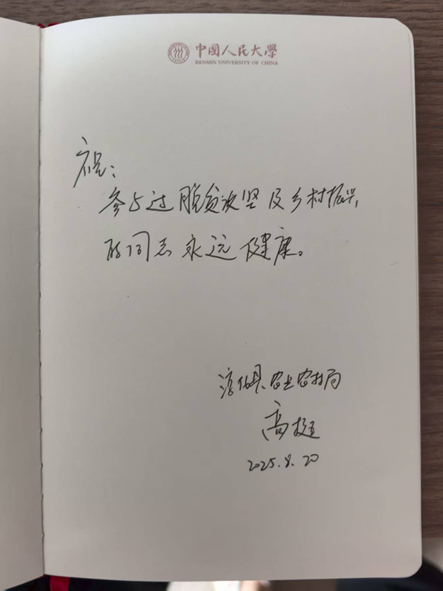 中國人民大學
RENMIN UNIVERSITY OF CHINA
祝：
参与过脱贫攻坚及乡村振兴
的同志永远健康。
淳化县农业农村局
高挺
2025.8.20